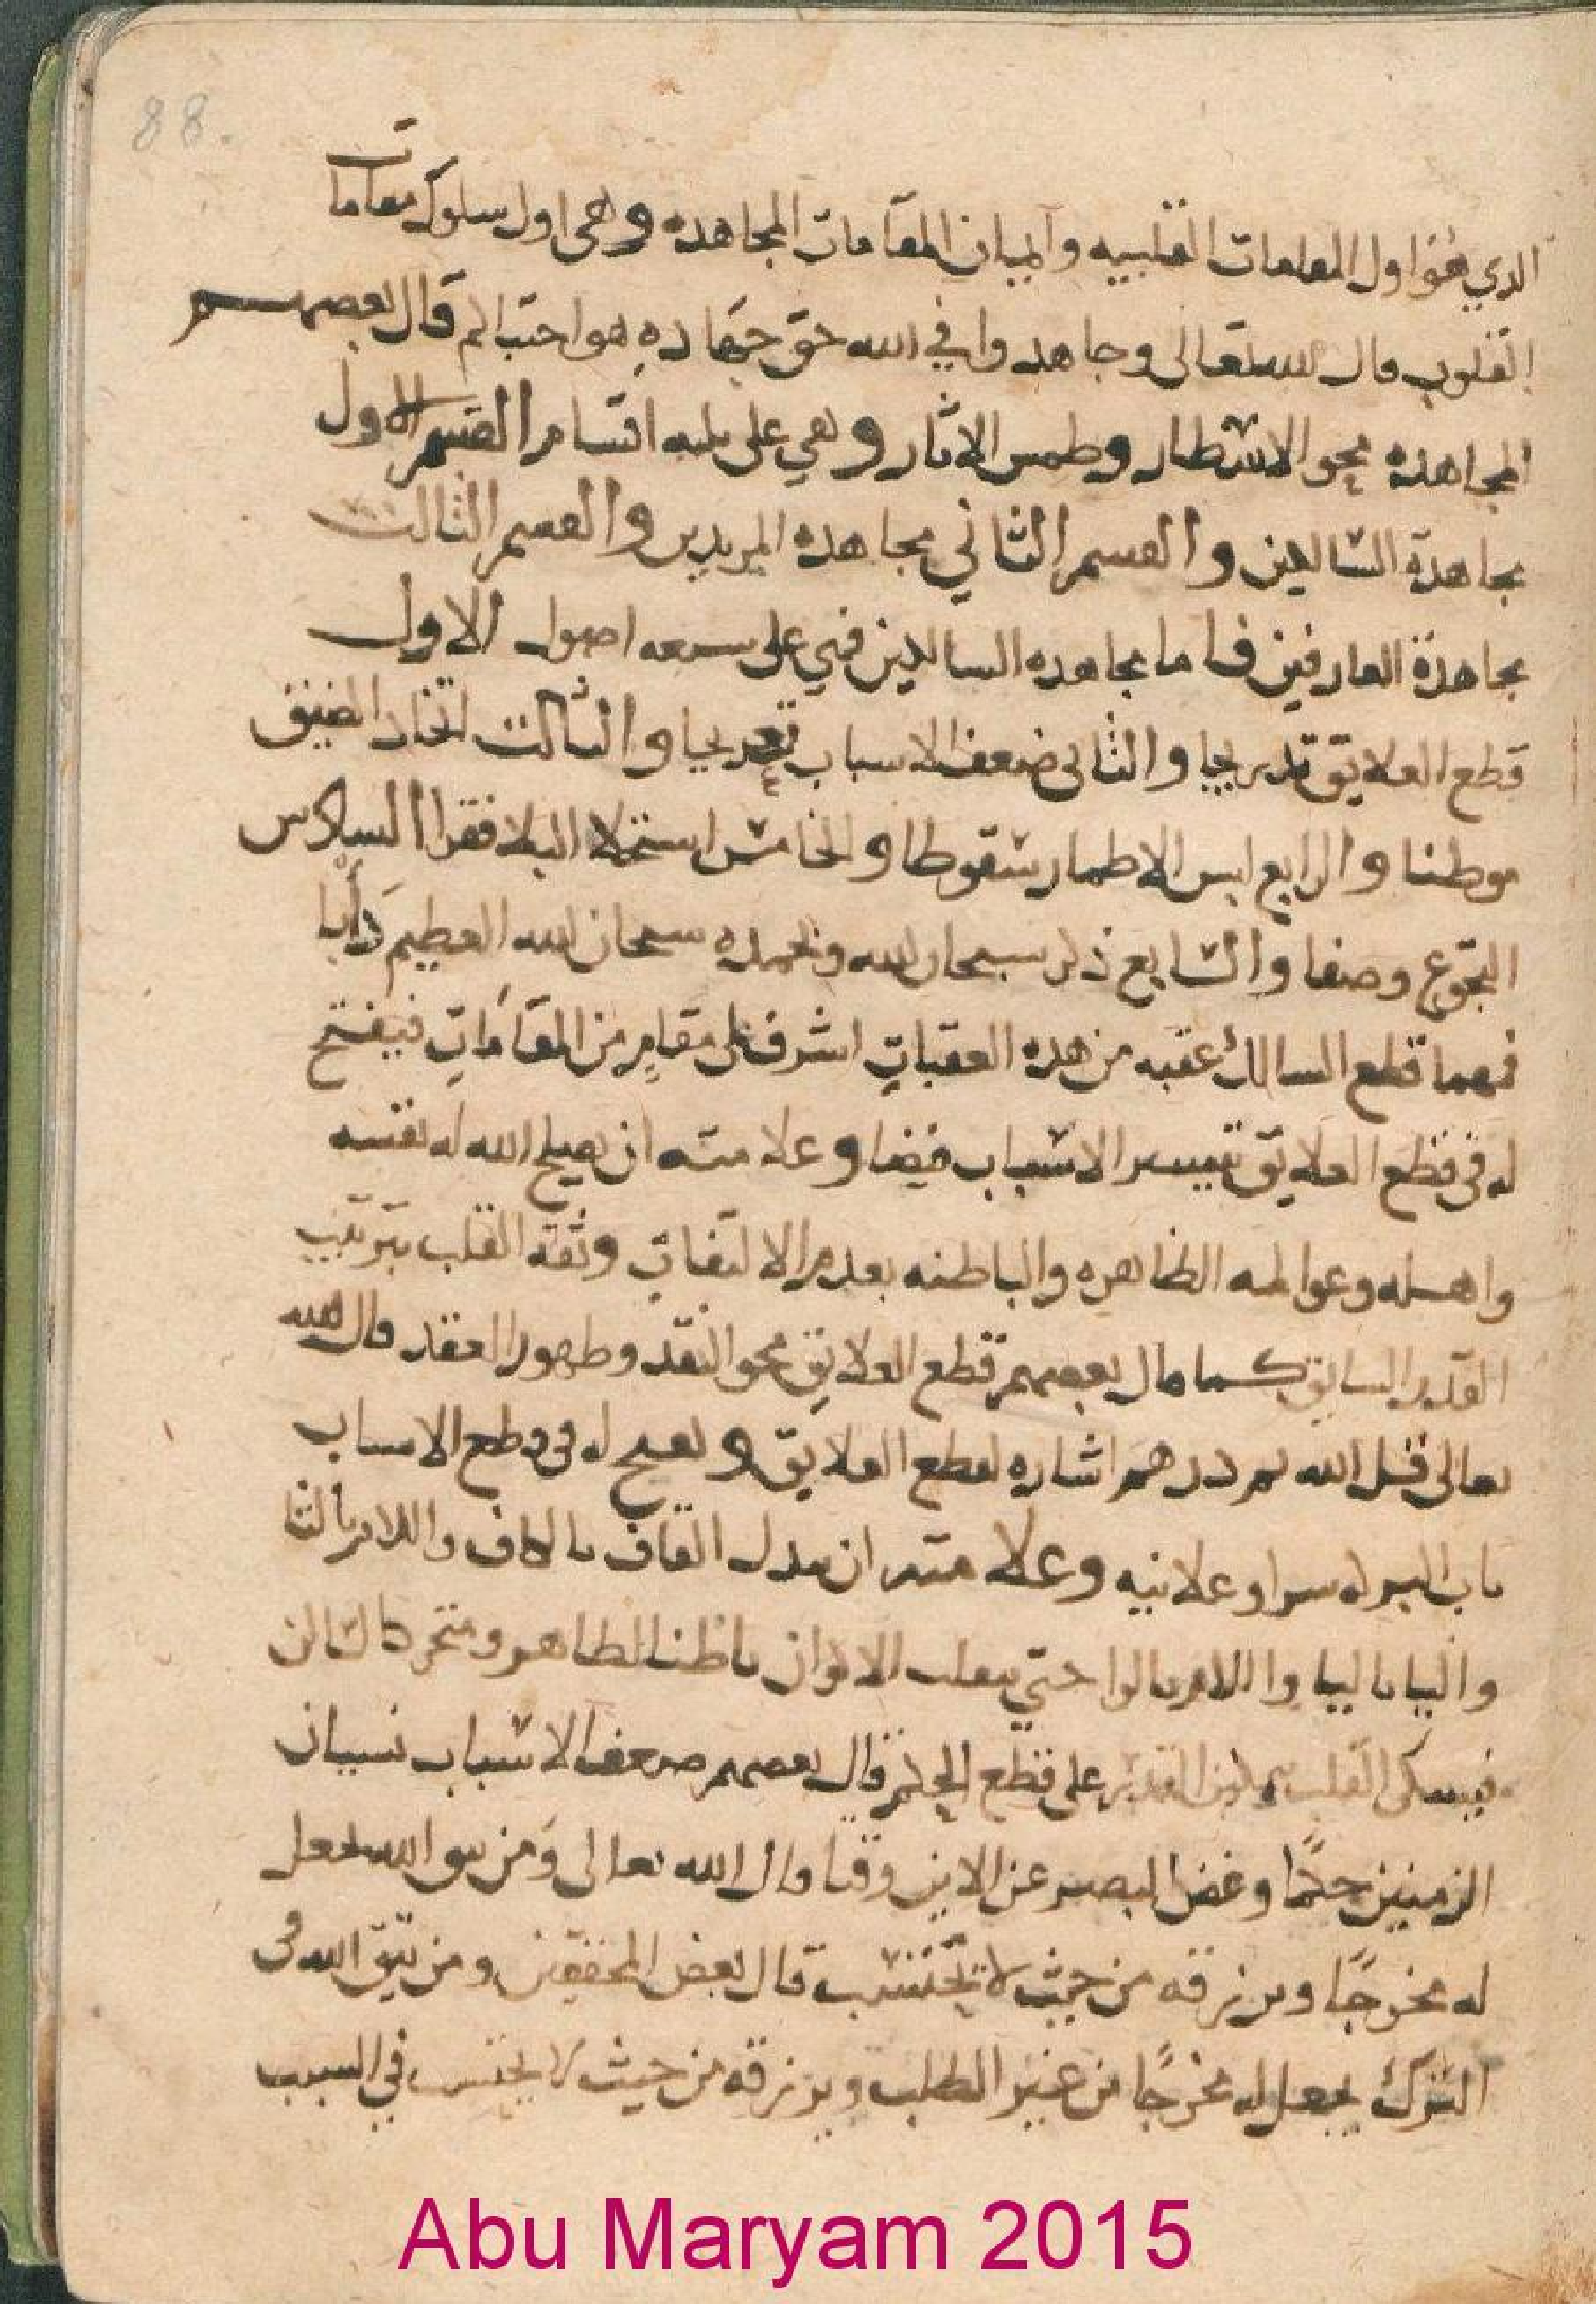 88.
الدي هو اول المقامات القلبيه واميات المقامات المجاهده وهي اول سلوك مقامات
القلوب قال الله تعالى وجاهدوا في الله حق جهاده هو اجتباكم قال بعضهم
المجاهده محو الاسطار وطمس الاثار وهي على ثلثه اقسام القسم الاول
مجاهدة السالكين والقسم الثاني مجاهده المريدين والقسم الثالث
مجاهدة العارفين فاما مجاهده السالكين فهي على سبعه اصول الاول
قطع العلايق تدريجا والثاني ضعف الاسباب تجريبا والثالث اتخاد الضيق
موطنا والرابع لبس الاطمار سقوطا والخامس استحلا البلا فقرا السادس
التجوع وصفا والسابع ذكر سبحان الله وبحمده سبحان الله العظيم دأبا
فمهما قطع السالك عقبه من هده العقبات اشرف على مقام من المقامات فيفتح
له في قطع العلايق تيسير الاسباب فيضا وعلامته ان يصلح الله له نفسه
واهله وعوالمه الظاهره والباطنه بعدم الالتفات وثقة القلب بترتيب
القدر السابق كما قال بعضهم قطع العلايق محو النقد وظهور العقد قال الله
تعالى قل الله ثم ذرهم اشاره لقطع العلايق ويفتح له في قطع الاسباب
باب البر له سرا وعلانيه وعلامته ان يبدل القاف بالكاف واللام بالتا
واليا باليا واللام بالوا حتي ينقلب الاكوان باطنا لظاهر ومتحركا لساكن
فيسكن القلب القدير على قطع الحلم قال بعضهم ضعف الاسباب نسيان
الزمنين حكما وغض البصر عن الاين وقتا قال الله تعالى ومن يتق الله يجعل
له مخرجًا ويرزقه من حيث لا يحتسب قال بعض المحققين ومن يتق الله في
الترك يجعل له مخرجًا من غير الطلب ويرزقه من حيث لا يحتسب في السبب
Abu Maryam 2015